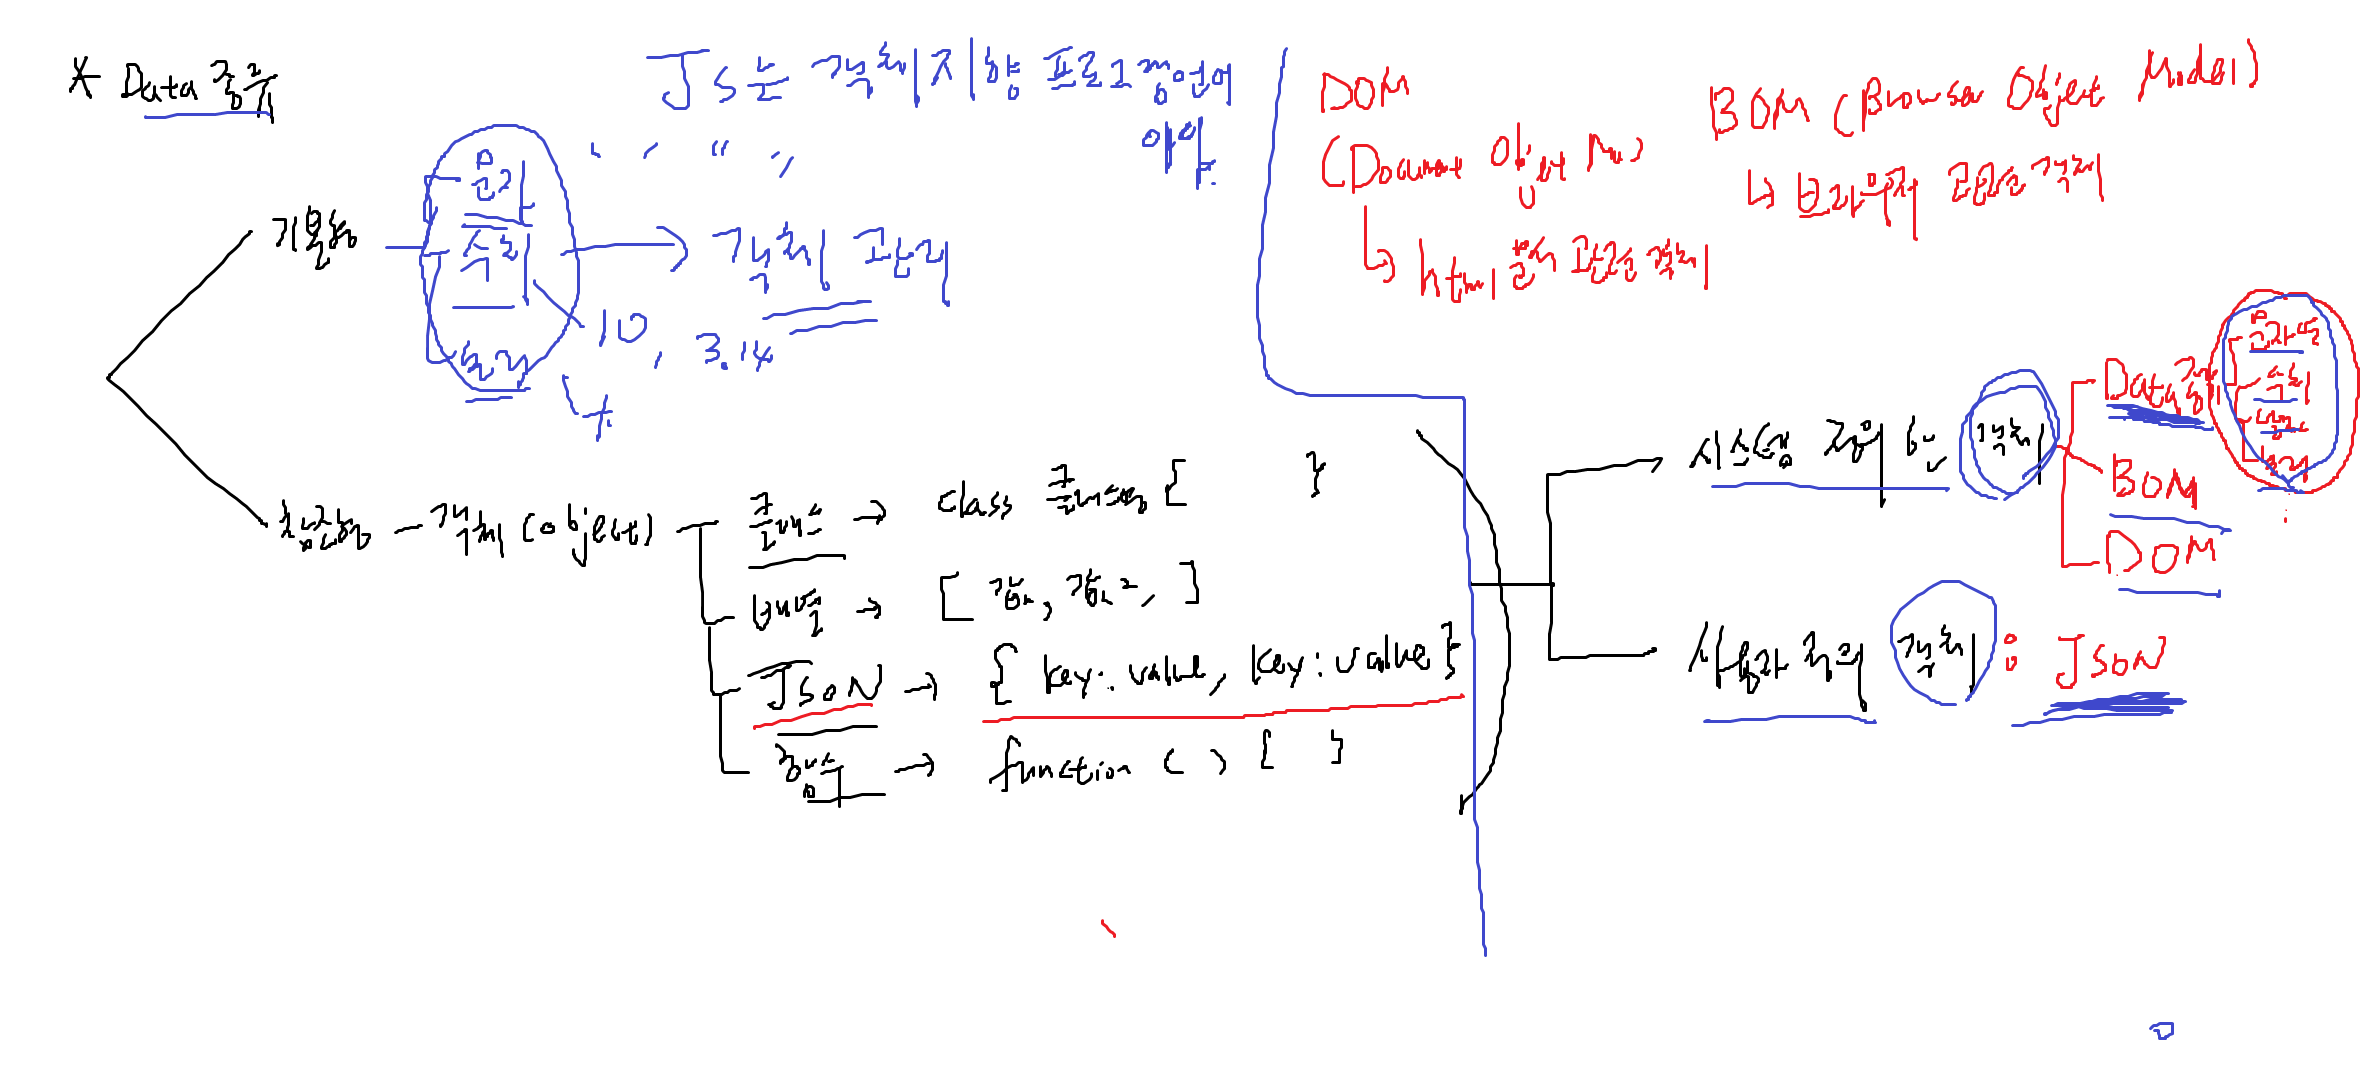 * Data 종류
JS는 객체지향 프로그래밍언어
이야.
" "
기본형
문자
숫자
논리
객체 관리
10, 3.14
참조형 - 객체 (object)
클래스 → class 클래스명 { }
배열 → [ 값1, 값2, ]
JSON → { key: value, key: value }
함수 → function ( ) { }
DOM
(Document Object Mo)
↳ html 문서 관련 객체
BOM (Browser Object Model)
↳ 브라우저 관련 객체
시스템 정의 된 객체
Data종류
문자열
숫자
논리
BOM
DOM
사용자 정의 객체 : JSON